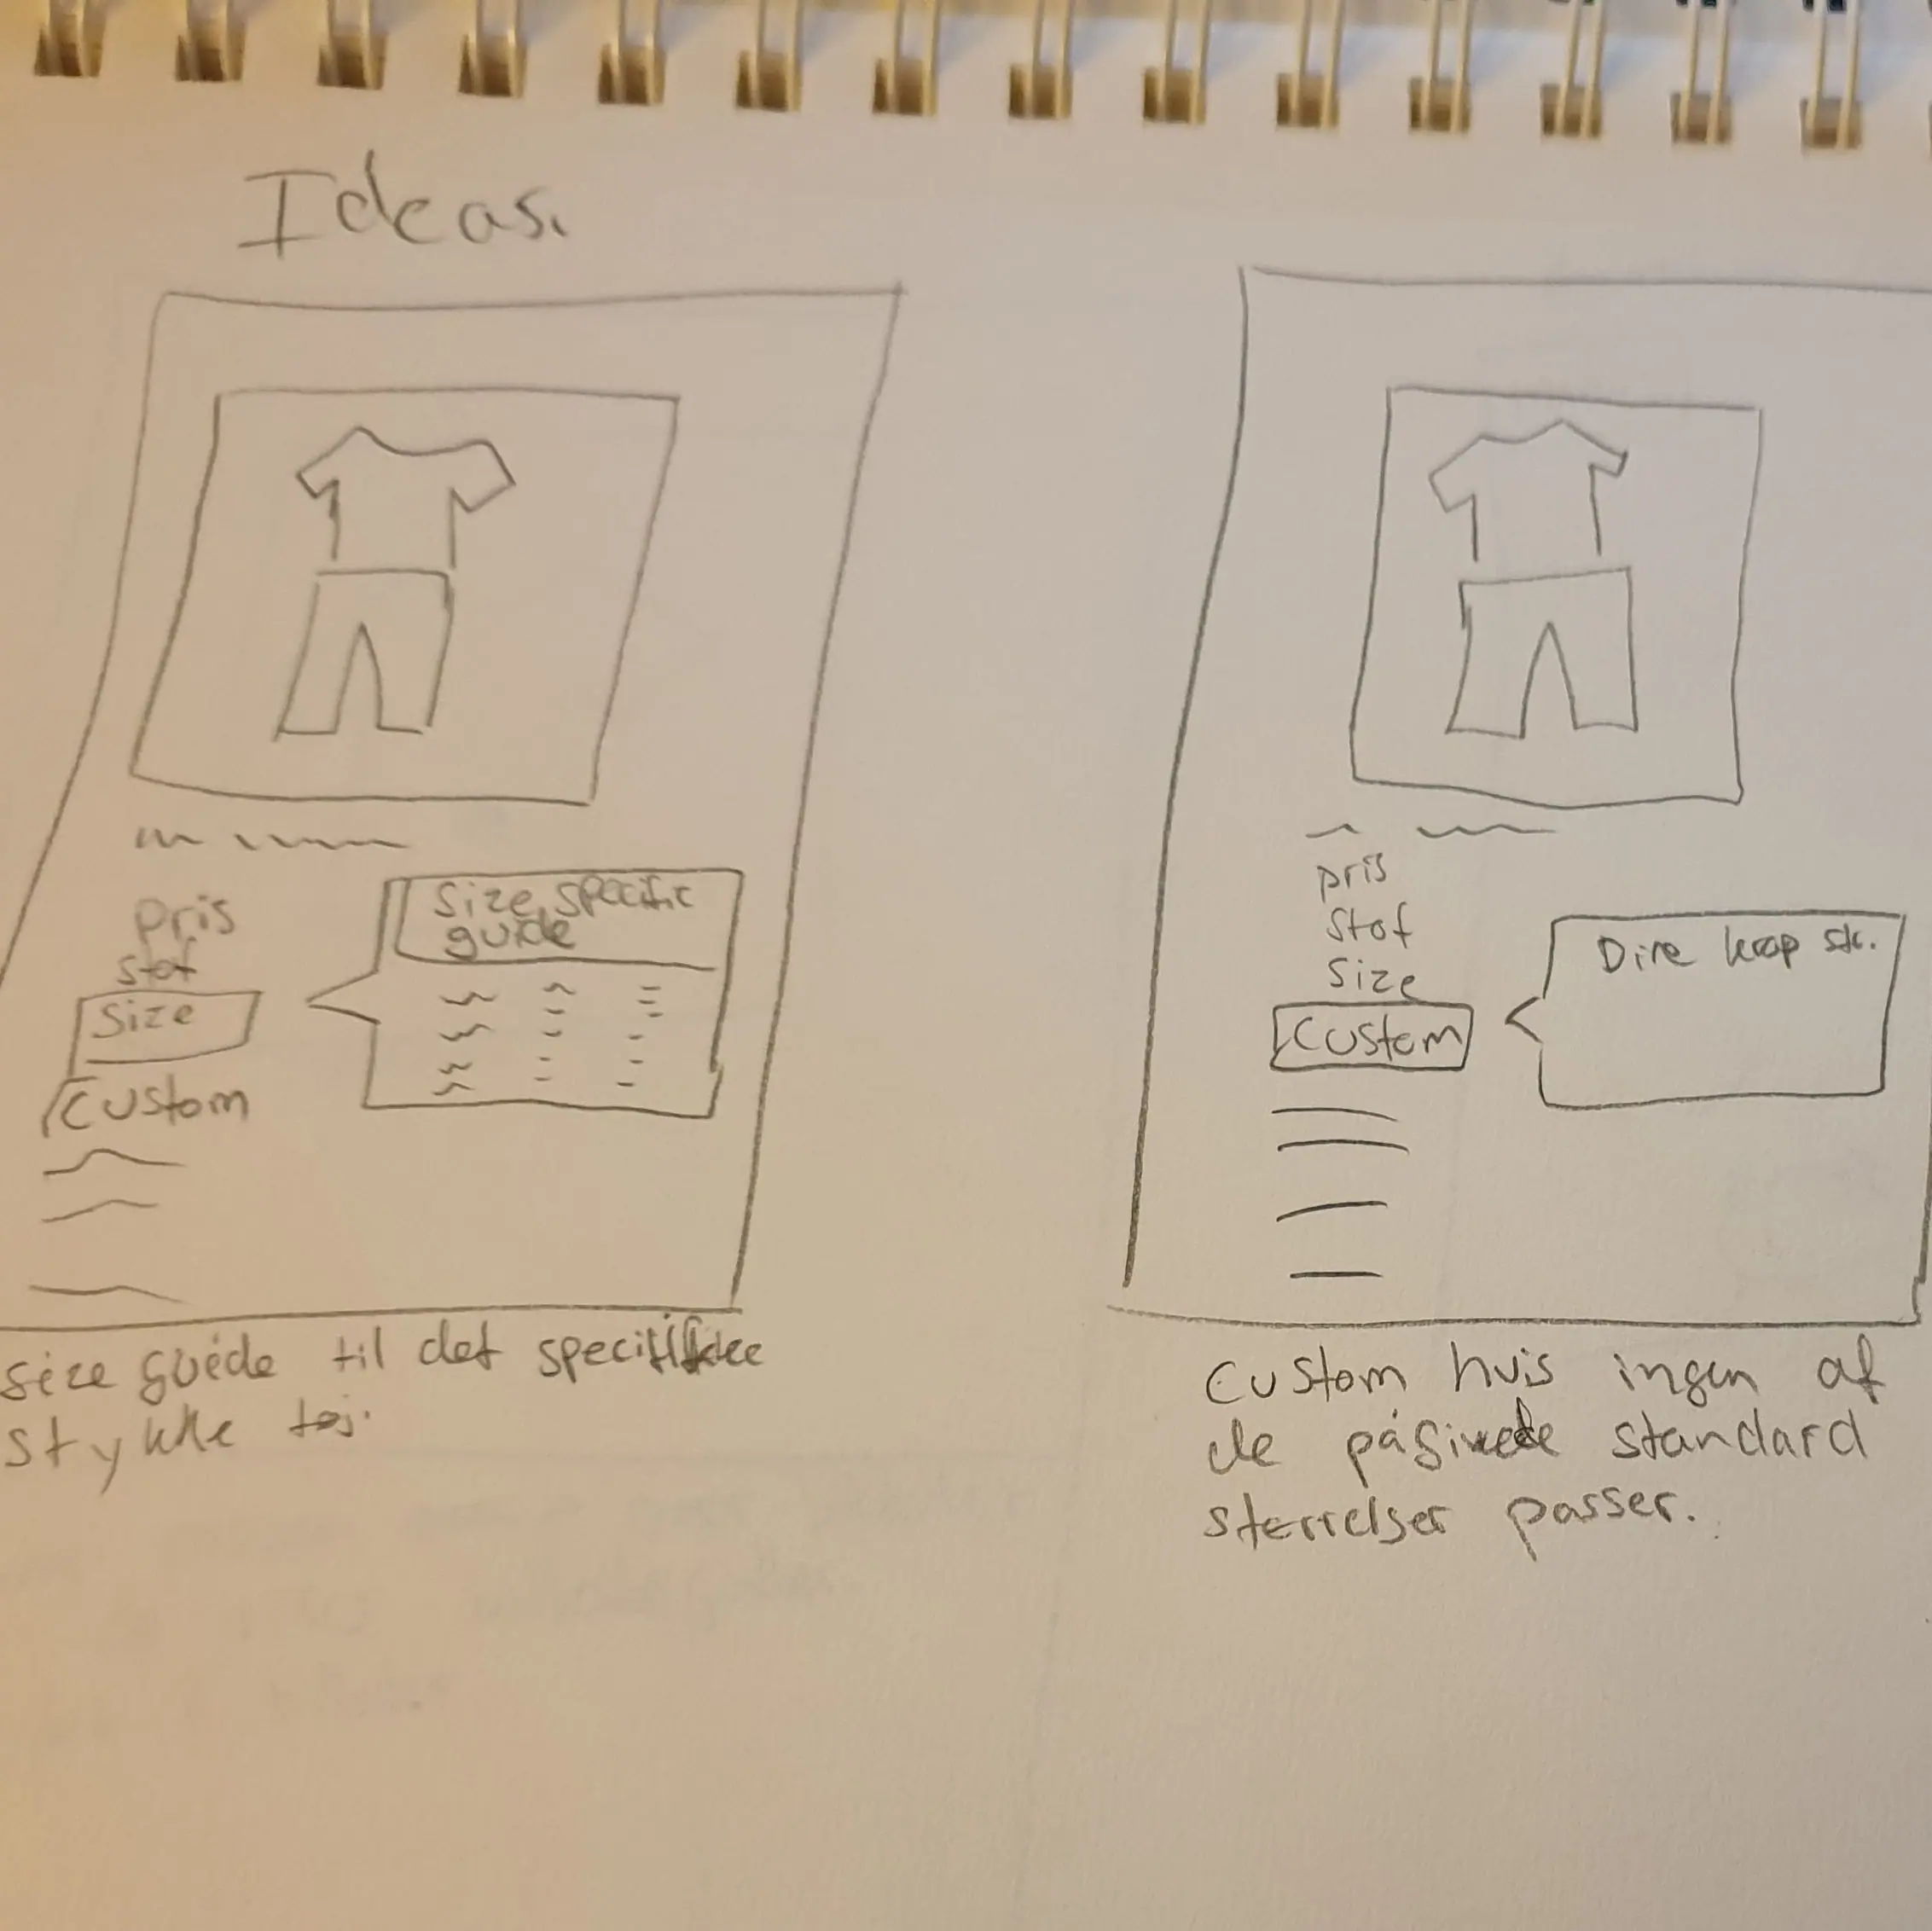 Ideas.
pris
stof
Size
Custom
Size specific
guide
size guide til det specifikke
stykke tøj.
pris
stof
Size
Custom
Dine krop str.
Custom hvis ingen af
de pågivede standard
størrelser passer.